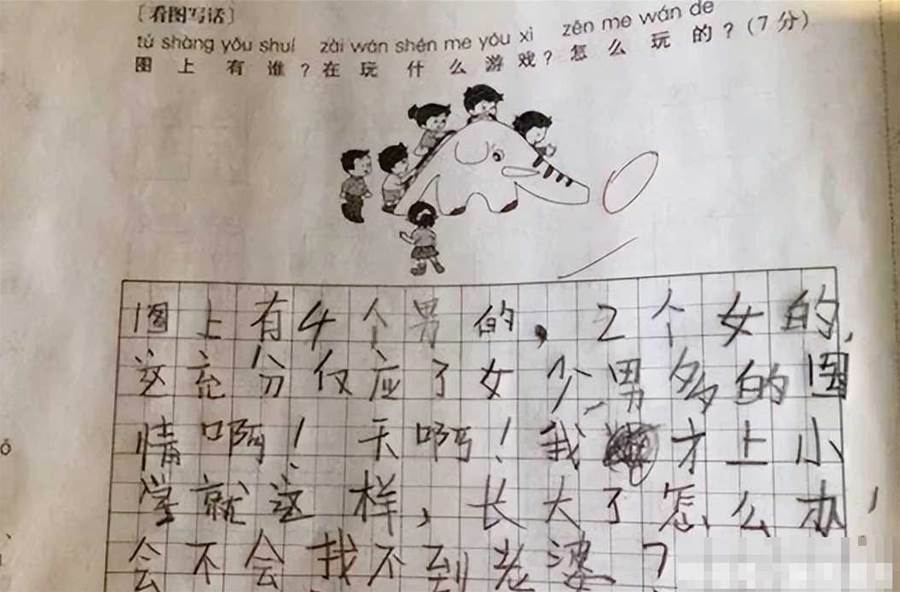 [看图写话]
tú shàng yǒu shuí zài wán shén me yóu xì zěn me wán de
图上有谁？在玩什么游戏？怎么玩的？(7分)
图上有4个男的，2个女的，
这充分仅应了女少男多的国
情啊！天啊！我才上小
学就这样，长大了怎么办，
会不会找不到老婆？
ǒ